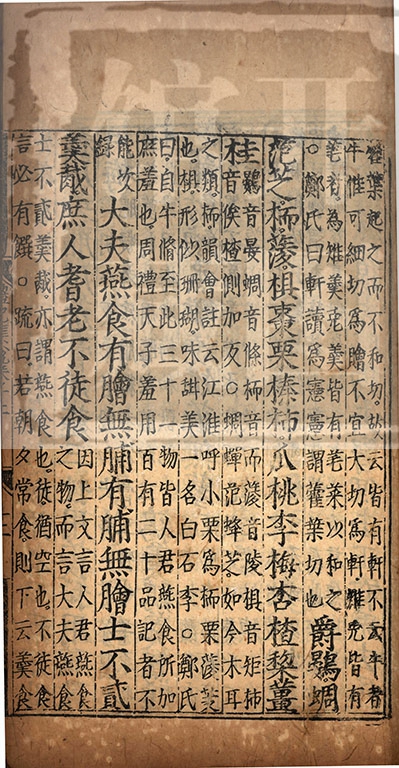 葉起之而不和切。故云皆有軒不云牛者
牛惟可細切為膾不宜大切為軒。雉兔皆有
芼者。為雉羹兔羹皆有芼菜以和之
。鄭氏曰軒讀為憲憲謂藿葉切也
爵鷃。蜩
范芝。栭。蔆。椇棗栗榛柿瓜桃李梅杏楂棃薑
桂
鷃音晏蜩音條栭音而蔆音陵椇音矩柿
音俟楂側加反○蜩蟬范蜂芝。如今木耳
之類。栭韻會註云江淮呼小栗為栭栗蔆芰
也。椇形似珊瑚。味甜美一名白石李。○鄭氏
曰自牛脩至此三十一物皆人君燕食所加
庶羞也。周禮天子羞用百有二十品記者不
能次
錄
大夫燕食有膾無脯有脯無膾士不貳
羹胾庶人耆老不徒食
因上文言人君燕食
之物。而言大夫燕食
士不貳羹胾。亦謂燕食也。徒猶空也。不徒食
言必有饌○疏曰。若朝夕常食則下云羹食